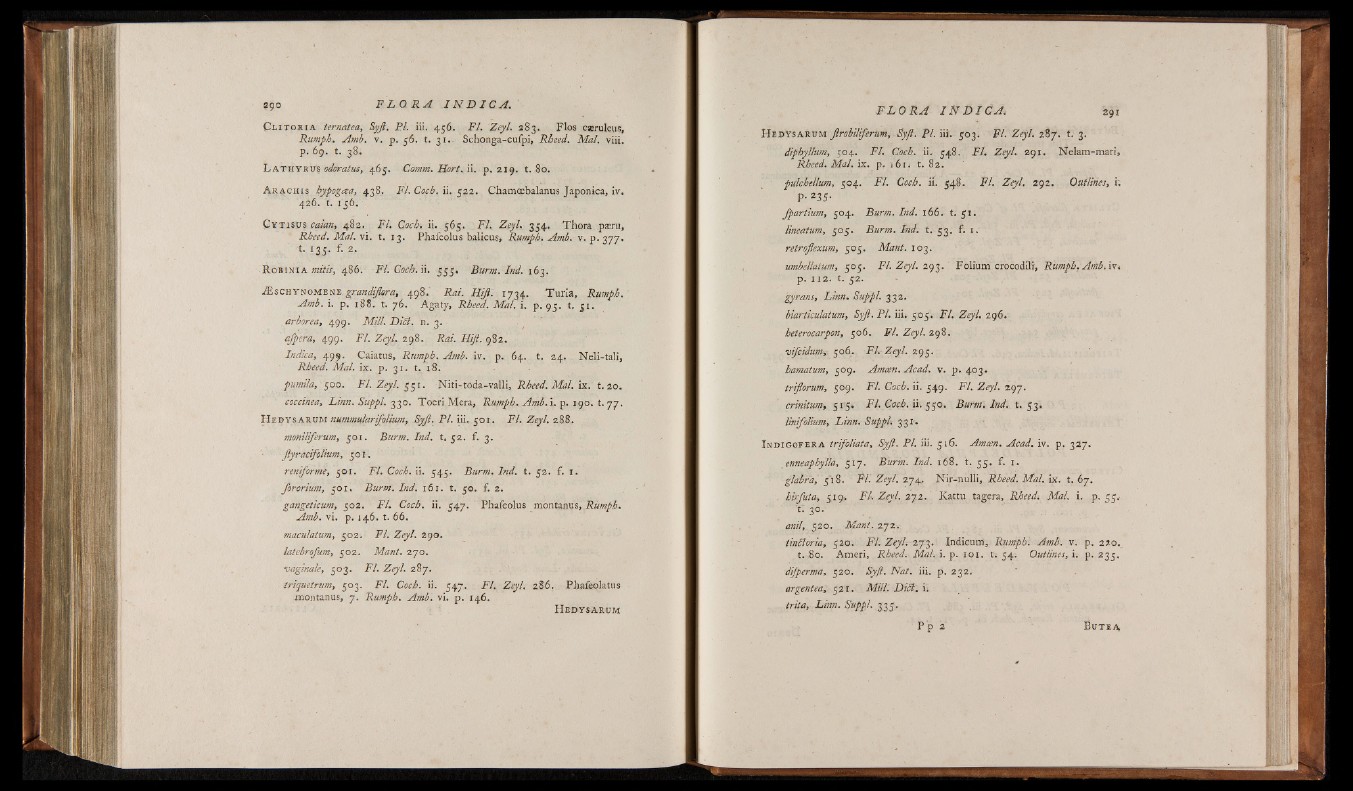 290 FLORA INDICA.
CLITORIA ternatea, Syſt. Pl. iii. 456. Fl. Zeyl. 283. Flos cæruleus,
Rumph. Amb. v. p. 56. t. 31. Schonga-cuſpi, Rheed. Mal. viii.
p. 69. t. 38.
LATHYRUS odoratus, 465. Comm. Hort. ii. p. 219. t. 80.
ARACHIS hypogæa, 438. Fl. Coch. ii. 522. Chamœbalanus Japonica, iv.
426. t. 156.
CYTISUS caian, 482. Fl. Coch. ii. 565. Fl. Zeyl. 354. Thora pæru,
Rheed. Mal. vi. t. 13. Phaſeolus balicus, Rumph. Amb. v. p. 377.
t. 135. f. 2.
ROBINIA mitis, 486. Fl. Coch. ii. 555. Burm. Ind. 163.
ÆSCHYNOMENE grandiflora, 498. Rai. Hiſt. 1734. Turia, Rumph.
Amb. i. p. 188. t. 76. Agaty, Rheed. Mal. i. p. 95. t. 51.
arborea, 499. Mill. Dict. n. 3.
aſpera, 499. Fl. Zeyl. 298. Rai. Hiſt. 982.
Indica, 499. Caiatus, Rumph. Amb. iv. p. 64. t. 24. Neli-tali,
Rheed. Mal. ix. p. 31. t. 18.
pumila, 500. Fl. Zeyl. 551. Niti-toda-valli, Rheed. Mal. ix. t. 20.
coccinea, Linn. Suppl. 330. Toeri Mera, Rumph. Amb. i. p. 190. t. 77.
HEDYSARUM nummularifolium, Syſt. Pl. iii. 501. Fl. Zeyl. 288.
moniliferum, 501. Burm. Ind. t. 52. f. 3.
ſtyracifolium, 501.
reniforme, 501. Fl. Coch. ii. 545. Burm. Ind. t. 52. f. 1.
ſororium, 501. Burm. Ind. 161. t. 50. f. 2.
gangeticum, 502. Fl. Coch. ii. 547. Phaſeolus montanus, Rumph.
Amb. vi. p. 146. t. 66.
maculatum, 502. Fl. Zeyl. 290.
latebroſum, 502. Mant. 270.
vaginale, 503. Fl. Zeyl. 287.
triquetrum, 503. Fl. Coch. ii. 547. Fl. Zeyl. 286. Phaſeolatus
montanus, 7. Rumph. Amb. vi. p. 146.
HEDYSARUM
FLORA INDICA. 291
HEDYSARUM ſtrobiliferum, Syſt. Pl. iii. 503. Fl. Zeyl. 287. t. 3.
diphyllum, 504. Fl. Coch. ii. 548. Fl. Zeyl. 291. Nelam-mari,
Rheed. Mal. ix. p. 161. t. 82.
pulchellum, 504. Fl. Coch. ii. 548. Fl. Zeyl. 292. Outlines, i.
p. 235.
ſpartium, 504. Burm. Ind. 166. t. 51.
lineatum, 505. Burm. Ind. t. 53. f. 1.
retroflexum, 505. Mant. 103.
umbellatum, 505. Fl. Zeyl. 293. Folium crocodili, Rumph. Amb. iv.
p. 112. t. 52.
gyrans, Linn. Suppl. 332.
biarticulatum, Syſt. Pl. iii. 505. Fl. Zeyl. 296.
heterocarpon, 506. Fl. Zeyl. 298.
viſcidum, 506. Fl. Zeyl. 295.
hamatum, 509. Amœn. Acad. v. p. 403.
triflorum, 509. Fl. Coch. ii. 549. Fl. Zeyl. 297.
crinitum, 515. Fl. Coch. ii. 550. Burm. Ind. t. 53.
linifolium, Linn. Suppl. 331.
INDIGOFERA trifoliata, Syſt. Pl. iii. 516. Amœn. Acad. iv. p. 327.
enneaphylla, 517. Burm. Ind. 168. t. 55. f. 1.
glabra, 518. Fl. Zeyl. 274. Nir-nulli, Rheed. Mal. ix. t. 67.
hirſuta, 519. Fl. Zeyl. 272. Kattu tagera, Rheed. Mal. i. p. 55.
t. 30.
anil, 520. Mant. 272.
tinctoria, 520. Fl. Zeyl. 273. Indicum, Rumph. Amb. v. p. 220.
t. 80. Ameri, Rheed. Mal. i. p. 101. t. 54. Outlines, i. p. 235.
diſperma, 520. Syſt. Nat. iii. p. 232.
argentea, 521. Mill. Dict. i.
trita, Linn. Suppl. 335.
Pp 2 BUTEA,